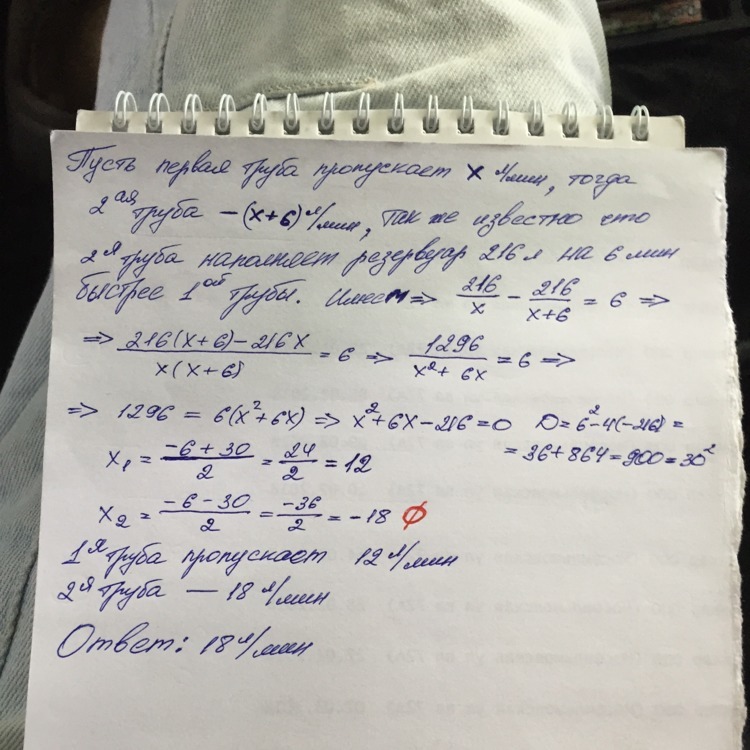 Пусть первая труба пропускает x л/мин, тогда
2ая труба – (x+6) л/мин, так же известно что
2я труба наполняет резервуар 216 л на 6 мин
быстрее 1ой трубы. Имеем ⇒ 216/x − 216/(x+6) = 6 ⇒
⇒ (216(x+6)−216x)/(x(x+6)) = 6 ⇒ 1296/(x²+6x) = 6 ⇒
⇒ 1296 = 6(x²+6x) ⇒ x²+6x−216=0 D=6²−4(−216)=
= 36+864=900=30²
x₁ = (−6+30)/2 = 24/2 = 12
x₂ = (−6−30)/2 = −36/2 = −18 ∅
1я труба пропускает 12 л/мин
2я труба — 18 л/мин
Ответ: 18 л/мин